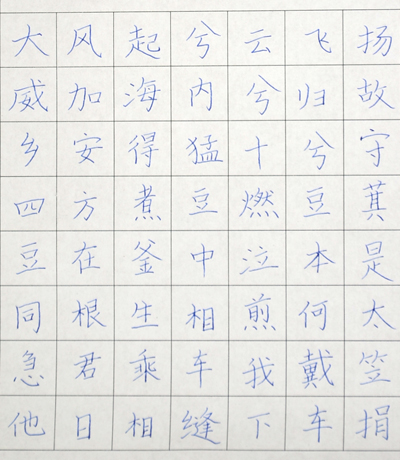 大风起兮云飞扬
威加海内兮归故
乡安得猛十兮守
四方煮豆燃豆萁
豆在釜中泣本是
同根生相煎何太
急君乘车我戴笠
他日相缝下车捐